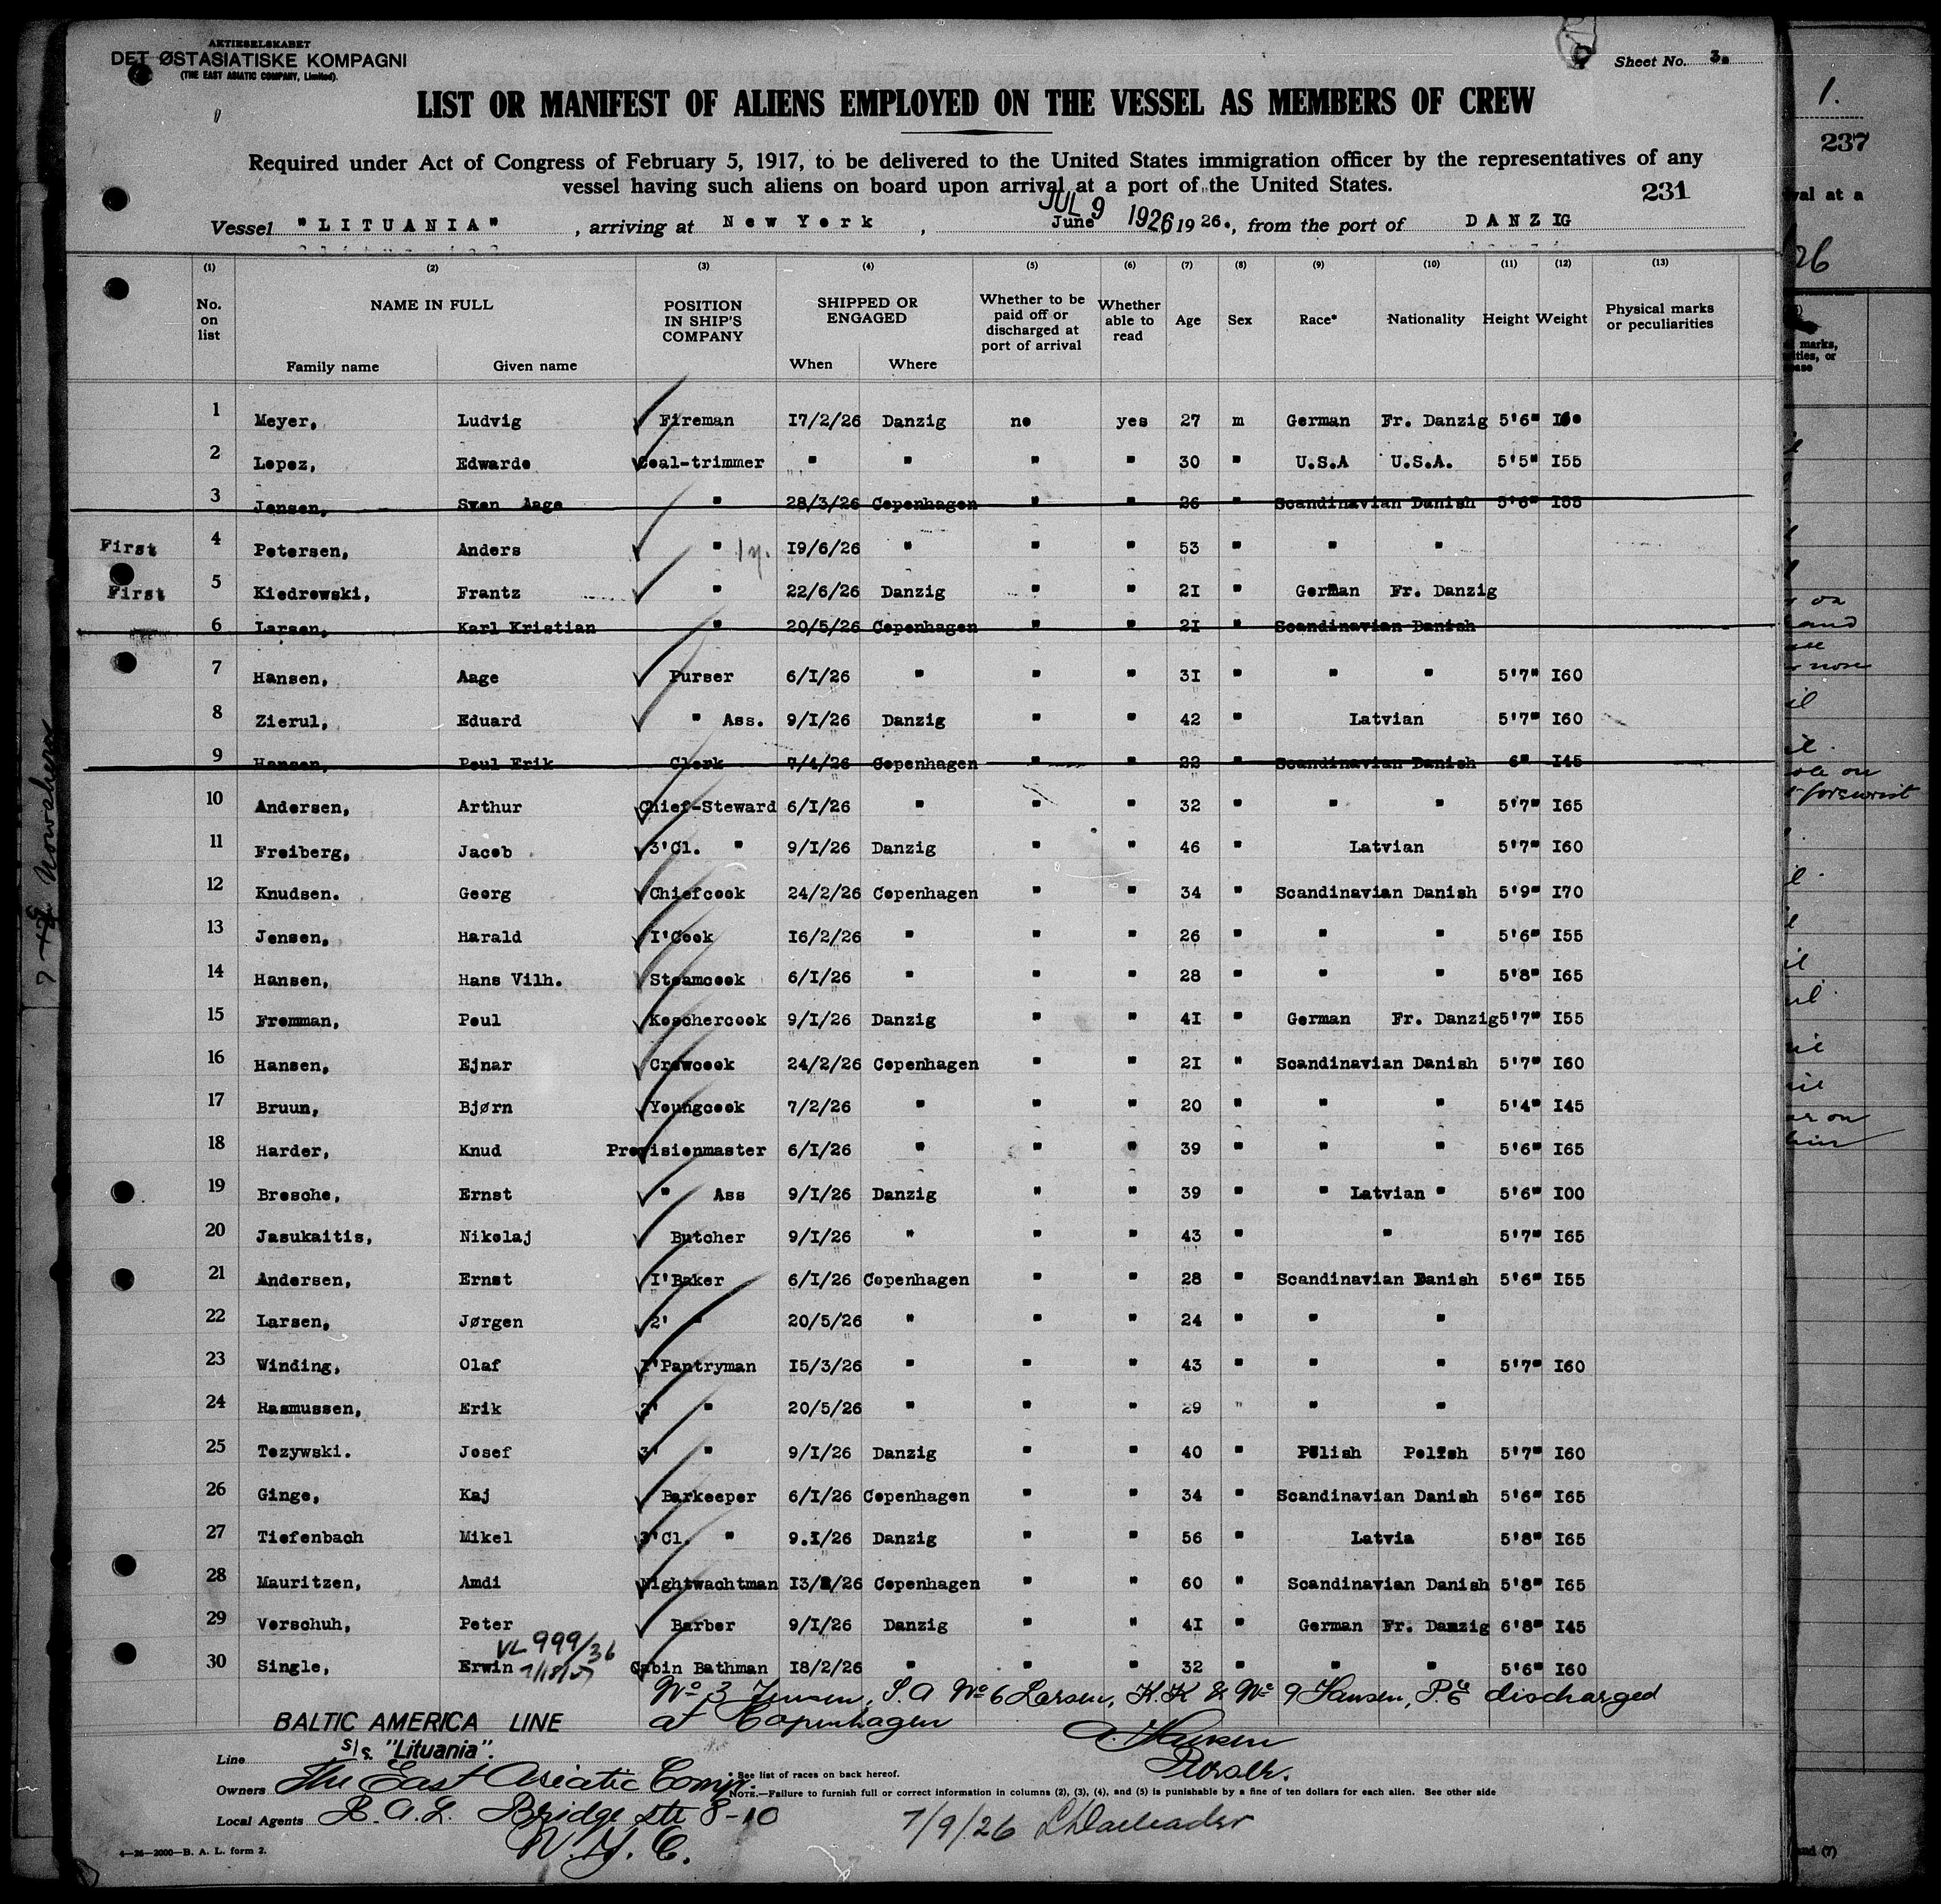 AKTIESELSKABET
DET ØSTASIATISKE KOMPAGNI
(THE EAST ASIATIC COMPANY, Limited).
Sheet No. 3.
LIST OR MANIFEST OF ALIENS EMPLOYED ON THE VESSEL AS MEMBERS OF CREW
Required under Act of Congress of February 5, 1917, to be delivered to the United States immigration officer by the representatives of any
vessel having such aliens on board upon arrival at a port of the United States.
231
JUL 9 1926
Vessel "LITUANIA", arriving at New York, June 1926., from the port of DANZIG
(1) (2) (3) (4) (5) (6) (7) (8) (9) (10) (11) (12) (13)
No. on list NAME IN FULL POSITION IN SHIP'S COMPANY SHIPPED OR ENGAGED Whether to be paid off or discharged at port of arrival Whether able to read Age Sex Race* Nationality Height Weight Physical marks or peculiarities
Family name Given name When Where
1 Meyer, Ludvig Fireman 17/2/26 Danzig no yes 27 m German Fr. Danzig 5'6" I60
2 Lopez, Edwardo Coal-trimmer " " " " 30 " U.S.A U.S.A. 5'5" I55
3 Jensen, Swen Aage " 28/3/26 Copenhagen " " 26 " Scandinavian Danish 5'6" I55
First 4 Petersen, Anders " 1 y. I9/6/26 " " " 53 " " "
First 5 Kiedrowski, Frantz " 22/6/26 Danzig " " 2I " German Fr. Danzig
6 Larsen, Karl Kristian " 20/5/26 Copenhagen " " 2I " Scandinavian Danish
7 Hansen, Aage Purser 6/I/26 " " " 3I " " " 5'7" I60
8 Zierul, Eduard " Ass. 9/I/26 Danzig " " 42 " Latvian 5'7" I60
9 Hansen, Poul Erik Clerk 7/4/26 Copenhagen " " 22 " Scandinavian Danish 6" I45
10 Andersen, Arthur Chief-Steward 6/I/26 " " " 32 " " " 5'7" I65
11 Freiberg, Jacob 3'Cl. " 9/I/26 Danzig " " 46 " Latvian 5'7" I60
12 Knudsen. Georg Chiefcook 24/2/26 Copenhagen " " 34 " Scandinavian Danish 5'9" I70
13 Jensen, Harald I'Cook I6/2/26 " " " 26 " " " 5'6" I55
14 Hansen, Hans Vilh. Steamcook 6/I/26 " " " 28 " " " 5'8" I65
15 Fromman, Poul Koschercook 9/I/26 Danzig " " 4I " German Fr. Danzig 5'7" I55
16 Hansen, Ejnar Crewcook 24/2/26 Copenhagen " " 2I " Scandinavian Danish 5'7" I60
17 Bruun, Bjørn Youngcook 7/2/26 " " " 20 " " " 5'4" I45
18 Harder, Knud Provisionmaster 6/I/26 " " " 39 " " " 5'6" I65
19 Bresche, Ernst " Ass 9/I/26 Danzig " " 39 " " Latvian " 5'6" I00
20 Jasukaitis, Nikolaj Butcher 9/I/26 " " " 43 " " 5'7" I65
21 Andersen, Ernst I'Baker 6/I/26 Copenhagen " " 28 " Scandinavian Danish 5'6" I55
22 Larsen, Jørgen 2' " 20/5/26 " " " 24 " " "
23 Winding, Olaf I'Pantryman I5/3/26 " " " 43 " " " 5'7" I60
24 Rasmussen, Erik 2' " 20/5/26 " " " 29 " " "
25 Tezywski. Josef 3' " 9/I/26 Danzig " " 40 " Polish Polish 5'7" I60
26 Ginge, Kaj Barkeeper 6/I/26 Copenhagen " " 34 " Scandinavian Danish 5'6" I65
27 Tiefenbach Mikel 3'Cl. " 9.I/26 Danzig " " 56 " Latvia 5'8" I65
28 Mauritzen, Amdi Nightwachtman I3/2/26 Copenhagen " " 60 " Scandinavian Danish 5'8" I65
29 Verschuh, Peter Barber 9/I/26 Danzig " " 4I " German Fr. Danzig 6'8" I45
VL 999/36
30 Single, Erwin Cabin Bathman I8/2/26 " " " 32 " " " 5'6" I60
No 3 Jensen, S.A No 6 Larsen, K.K & No 9 Hansen, P.E discharged
at Copenhagen
A. Hansen
BALTIC AMERICA LINE
Line S/S. "Lituania".
Owners The East Asiatic Comp.
* See list of races on back hereof.
NOTE.—Failure to furnish full or correct information in columns (2), (3), (4), and (5) is punishable by a fine of ten dollars for each alien. See other side
Local Agents B.A.L. Bridge str 8-10
N.Y.C.
7/9/26
4—26—2000—B. A. L. form 2.
1.
237
val at a
26
marks,
ities, or
and (7)